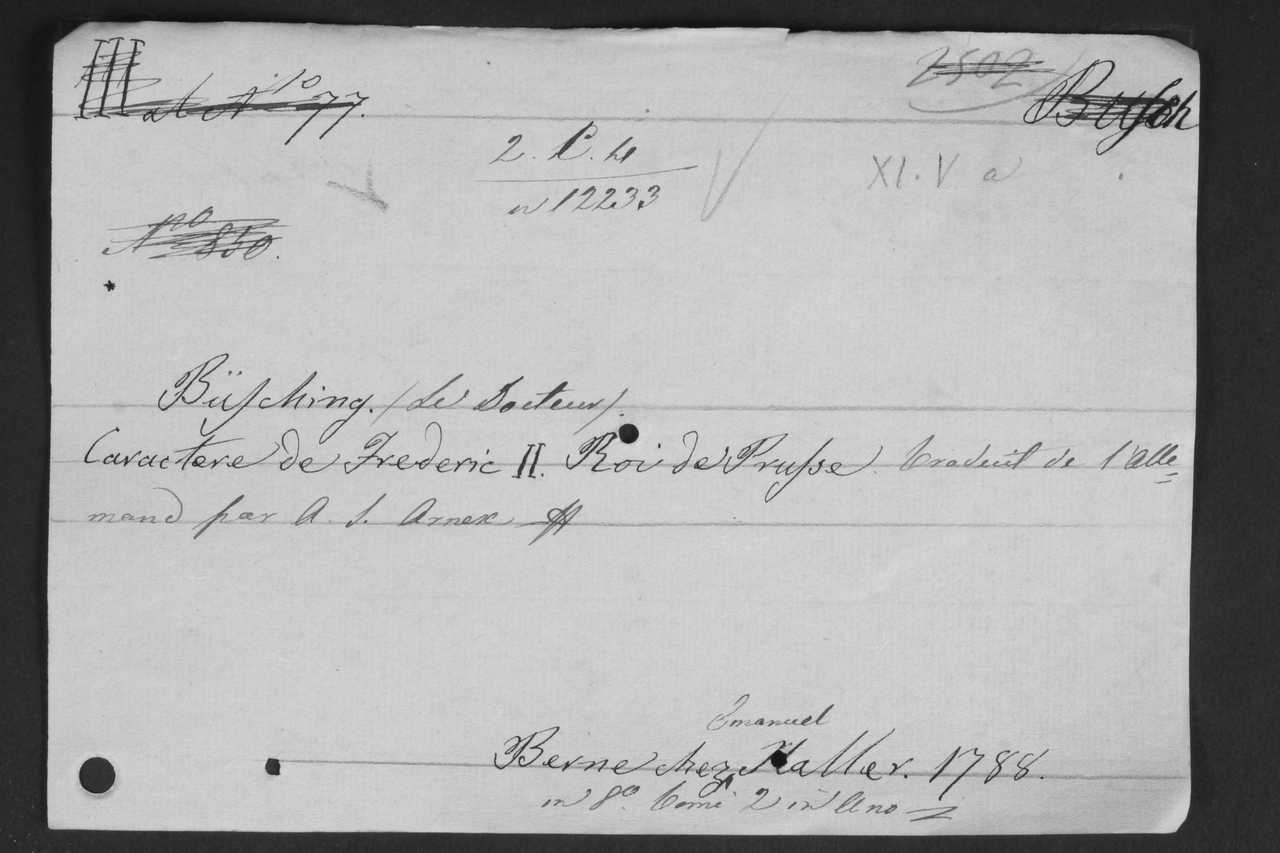 III
ab No 77.
2502
Busch
2. C. 4
n 12233
XI. V a
No 850.
Büsching. (Le Docteur).
Caractere de Frederic II. Roi de Prusse. traduit de l'Alle=
mand par A. S. Arnex
Emanuel
Berne chez Haller. 1788.
in 8o. tomi 2 in uno